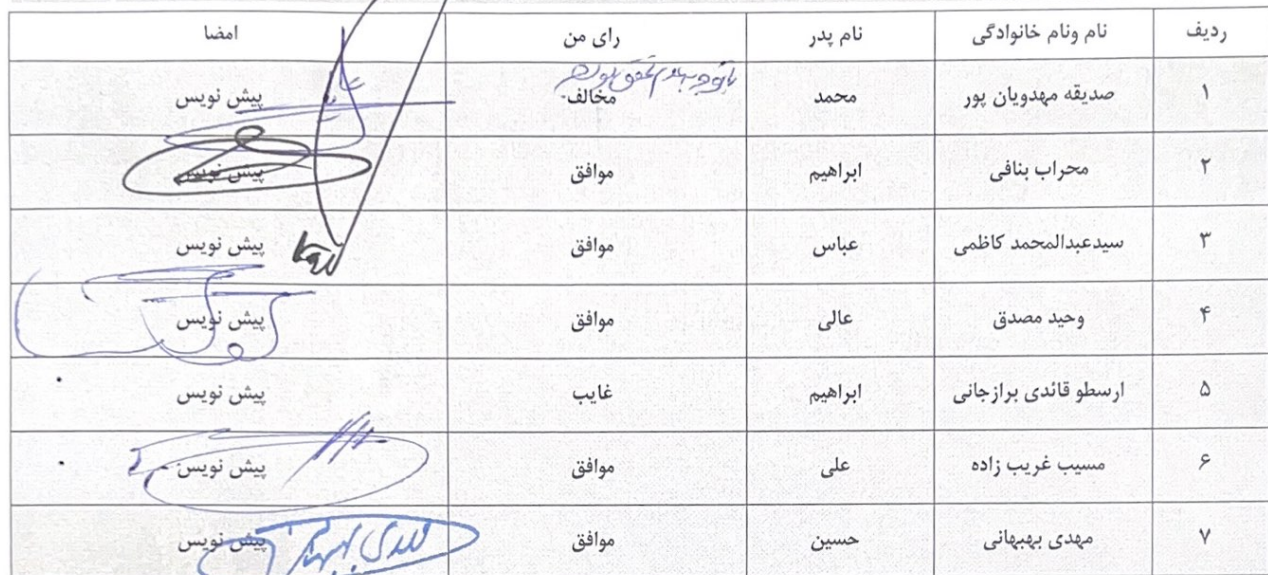 ردیف نام ونام خانوادگی نام پدر رای من امضا
۱ صدیقه مهدویان پور محمد مخالف پیش نویس
۲ محراب بنافی ابراهیم موافق پیش نویس
۳ سیدعبدالمحمد کاظمی عباس موافق پیش نویس
۴ وحید مصدق عالی موافق پیش نویس
۵ ارسطو قائدی برازجانی ابراهیم غایب پیش نویس
۶ مسیب غریب زاده علی موافق پیش نویس
۷ مهدی بهبهانی حسین موافق پیش نویس